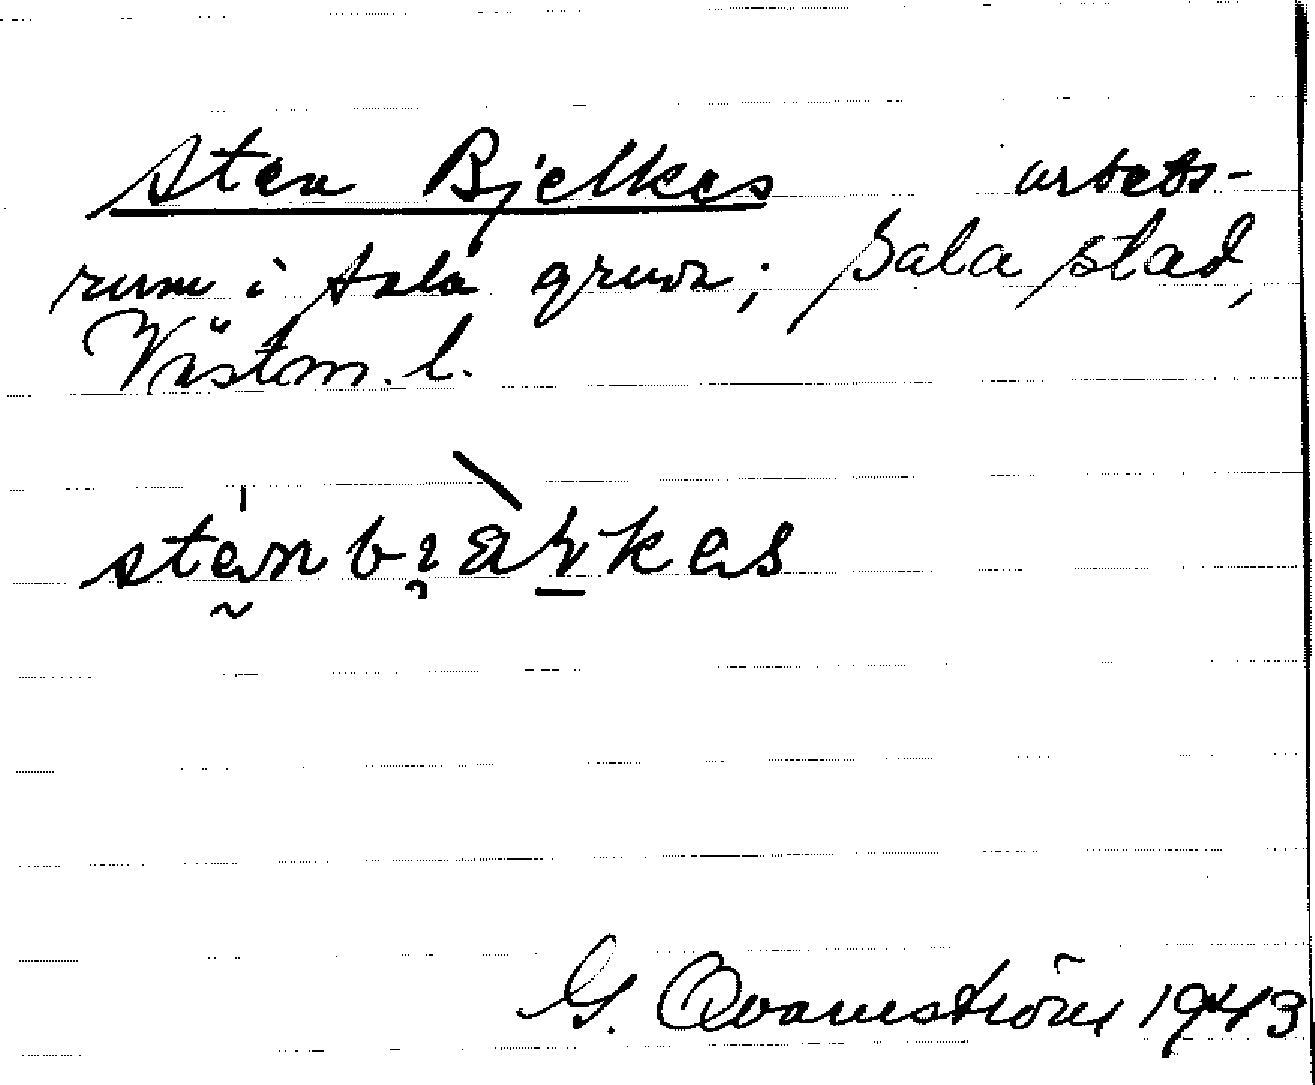 Sten Bjelkes arbets-
rum i Sala gruva; Sala stad,
Västm. l.
G. Qvarnström 1943